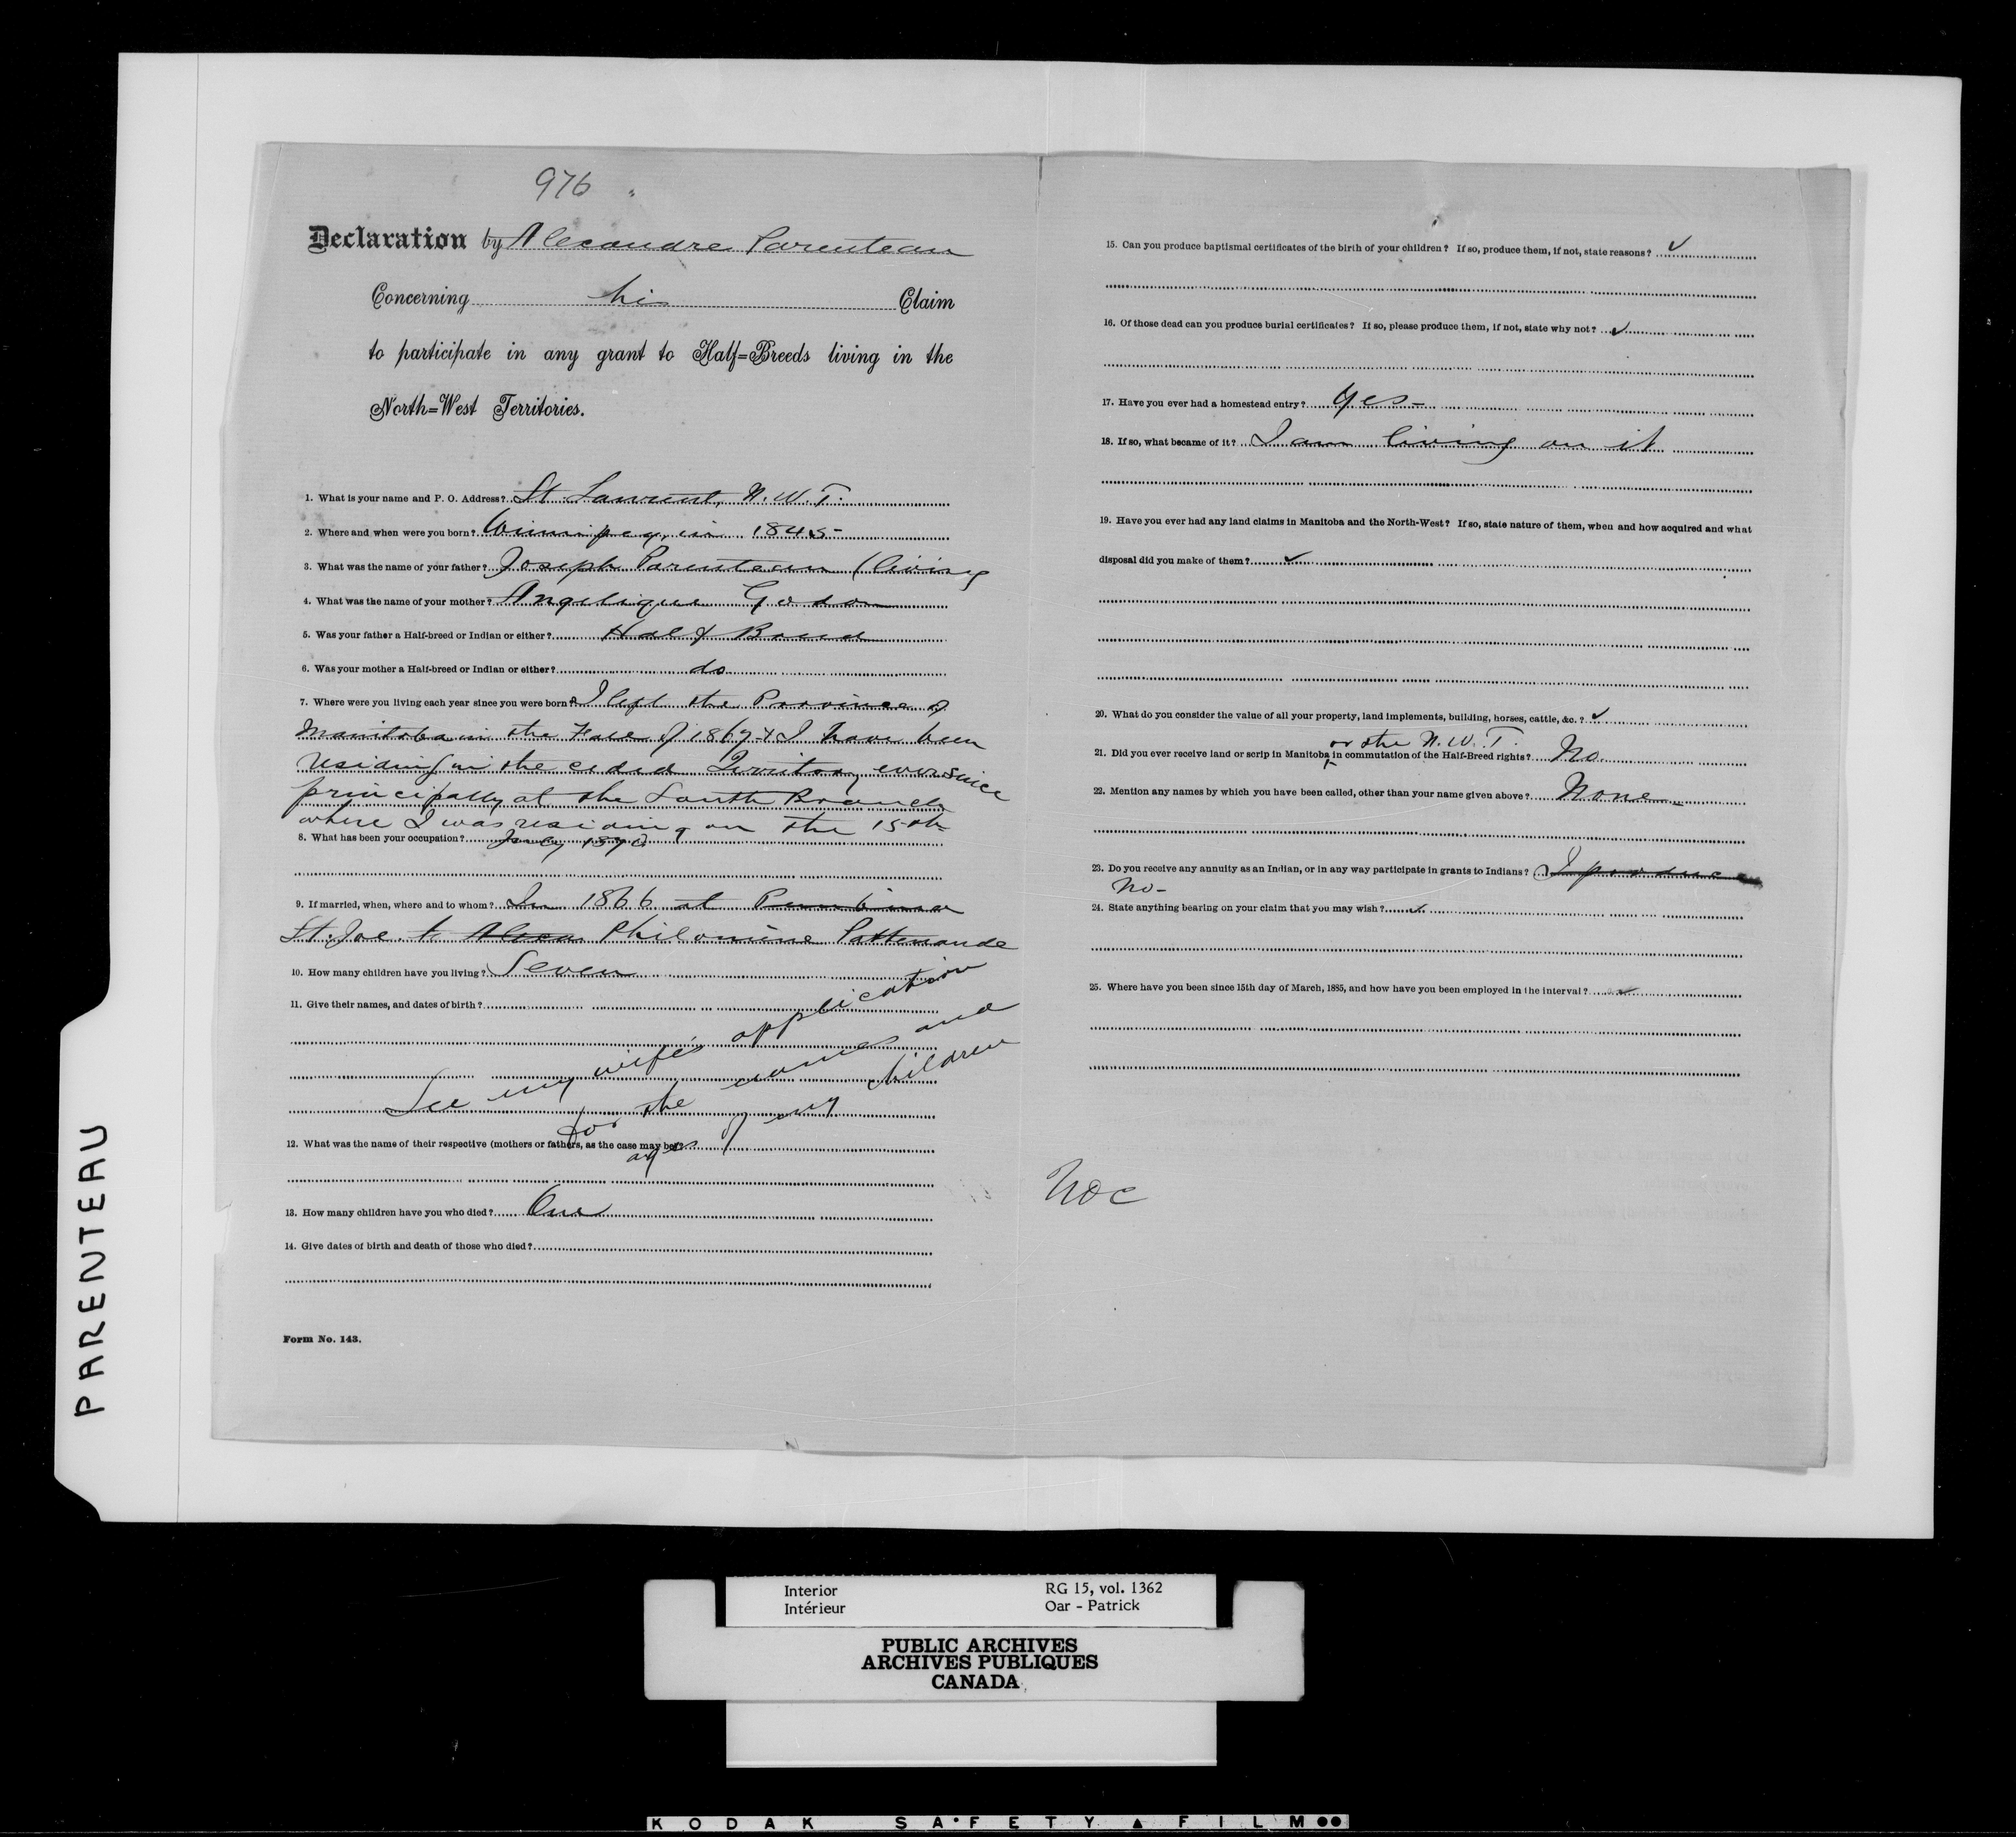 976 "
Declaration by Alexandre Parenteau
Concerning his Claim
to participate in any grant to Half=Breeds living in the
North=West Territories.
1. What is your name and P. O. Address? St. Laurent, N. W. T.
2. Where and when were you born? Winnipeg, in 1845-
3. What was the name of your father? Joseph Parenteau (living
4. What was the name of your mother? Angelique Godon
5. Was your father a Half-breed or Indian or either? Half Breed
6. Was your mother a Half-breed or Indian or either? do
7. Where were you living each year since you were born? I left the Province of
Manitoba in the Fall of 1867 & I have been
residing in the ceded Territory ever since
principally at the South Branch
where I was residing on the 15th
8. What has been your occupation? July 1870
9. If married, when, where and to whom? In 1866 at Pembina
St. Joe to Alexa Philomène Pattenaude
10. How many children have you living? Seven
11. Give their names, and dates of birth?
See my wife's application
for the names and
ages of my children
12. What was the name of their respective (mothers or fathers, as the case may be)?
13. How many children have you who died? One
14. Give dates of birth and death of those who died?
Form No. 143.
15. Can you produce baptismal certificates of the birth of your children? If so, produce them, if not, state reasons? ✓
16. Of those dead can you produce burial certificates? If so, please produce them, if not, state why not? ✓
17. Have you ever had a homestead entry? Yes-
18. If so, what became of it? I am living on it
19. Have you ever had any land claims in Manitoba and the North-West? If so, state nature of them, when and how acquired and what
disposal did you make of them? ✓
20. What do you consider the value of all your property, land implements, building, horses, cattle, &c.? ✓
or the N. W. T.
21. Did you ever receive land or scrip in Manitoba in commutation of the Half-Breed rights? No.
22. Mention any names by which you have been called, other than your name given above? None
23. Do you receive any annuity as an Indian, or in any way participate in grants to Indians? I produce
No-
24. State anything bearing on your claim that you may wish? ✓
25. Where have you been since 15th day of March, 1885, and how have you been employed in the interval? ✓
PARENTEAU
Interior RG 15, vol. 1362
Intérieur Oar - Patrick
PUBLIC ARCHIVES
ARCHIVES PUBLIQUES
CANADA
KODAK SA·FETY ▲ FILM ●●